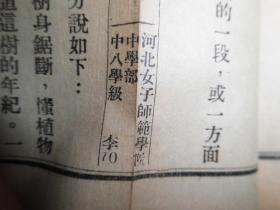 的一段，或一方面
河北女子師範學院
中學部
中八學級 李10
分說如下：
樹身鋸斷，懂植物
道這樹的年紀。一